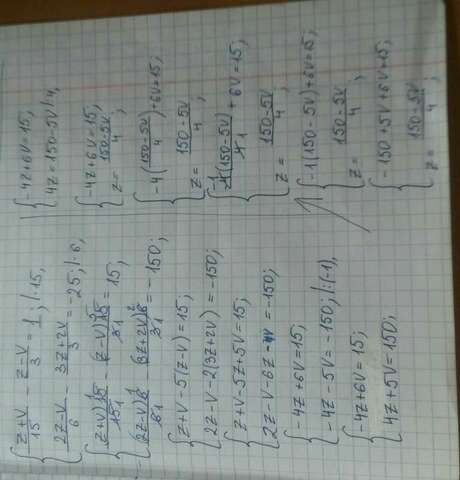 { z+v/15 - z-v/3 = 1; |·15,
{ 2z-v/6 - 3z+2v/3 = -25; |·6,
{ (z+v)15/15 1 - (z-v)15/3 1 = 15;
{ (2z-v)6 1/6 1 - (3z+2v)6 2/3 1 = -150;
{ z+v-5(z-v)=15;
{ 2z-v-2(3z+2v)=-150;
{ z+v-5z+5v=15;
{ 2z-v-6z-4v=-150;
{ -4z+6v=15;
{ -4z-5v=-150; |:(-1),
{ -4z+6v=15;
{ 4z+5v=150;
{ -4z+6v=15;
{ 4z=150-5v |:4,
{ -4z+6v=15;
{ z= 150-5v/4;
{ -4(150-5v/4)+6v=15;
{ z= 150-5v/4;
{ -1 4(150-5v)/4 1 +6v=15;
{ z= 150-5v/4;
{ -1(150-5v)+6v=15;
{ z= 150-5v/4;
{ -150+5v+6v=15;
{ z= 150-5v/4;